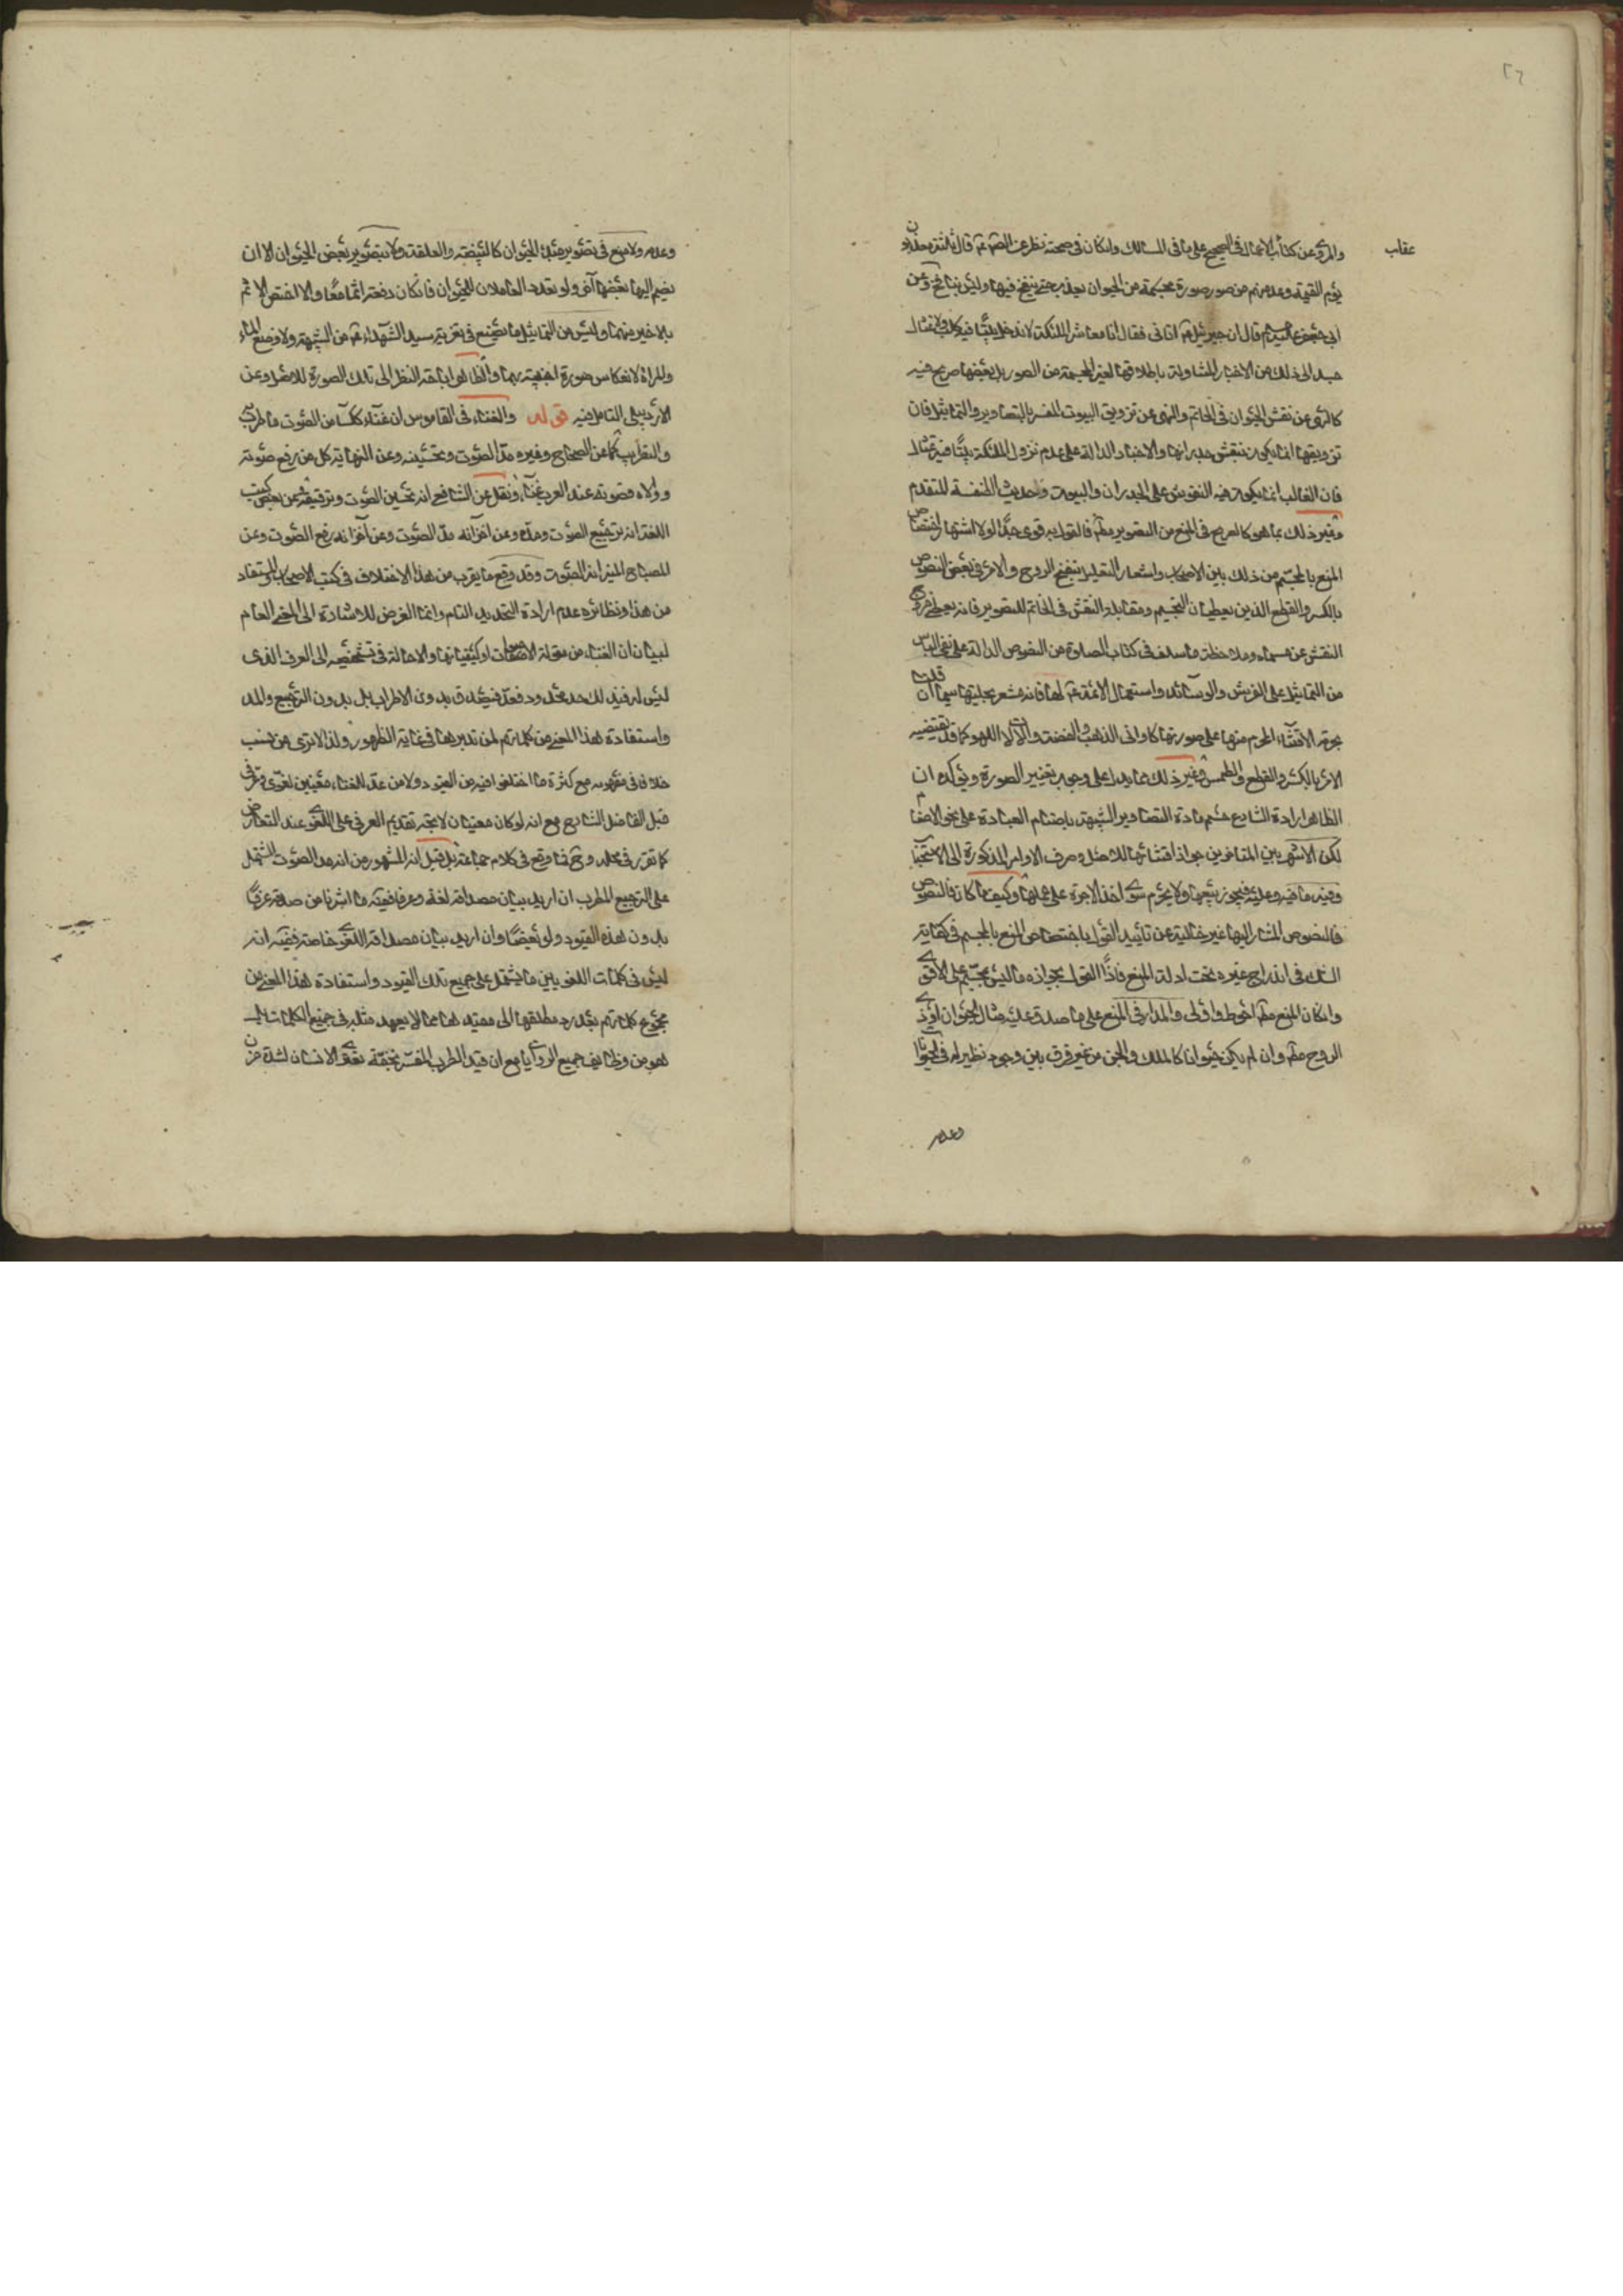 ٢٦
عقاب
والمروى عن كتاب الاعمال فى الصحيح على ما فى المسالك وان كان فى صحته نظر عن الصم عم قال ثلثة معذبون
يوم القيمة وعد منهم من صور صورة محكمة من الحيوان يعذب حتى ينفخ فيها وليس بنافخ وعن
ابى جعفر عليه السلم قال ان جبرئيل عم اتانى فقال انا معاشر الملئكة لا ندخل بيتا فيه كلب ولا تمثال
جسد الى ذلك من الاخبار المشاولة باطلاقها لغير المجسمة من الصور بل بعضها صريح فيه
كالنهى عن نقش الحيوان فى الخاتم والنهى عن تزويق البيوت المفسر بالتصاوير والتماثيل فان
تزويقها انما يكون بنقش جدرانها والاخبار الدالة على عدم نزول الملئكة بيتا فيه تمثال
فان الغالب انما يكون هذه النقوش على الجدران والبيوت ولحديث الخنفسة المتقدم
وغير ذلك مما هو كالصريح فى المنع من التصوير مطم فالقول به قوى جدا لولا اشتهار اختصاص
المنع بالمجسم من ذلك بين الاصحاب واشعار التعليل بنفخ الروح والامر فى بعض النصوص
بالكسر والقطع الذين يعطيان التجسيم ومقابلة النقش فى الخاتم للتصوير فانه يعطى خروج
النقش عن مسماه وملاحظة ما سلف فى كتاب الصلوة من النصوص الدالة على نفى الباس
من التماثيل على الفرش والوسائد واستعمال الائمة عم لها فانه مشعر بحليتها سيما ان قلنا
بحرمة الاقتناء المحرم منها على صورتها كاوانى الذهب والفضة والات اللهو كما قد يقتضيه
الامر بالكسر والقطع والطمس وغير ذلك مما يدل على وجوب تغيير الصورة ويؤكده ان
الظاهر ارادة الشارع حسم مادة التصاوير الشبيهة باصنام العبادة على نحو الاصنام
لكن الاشهر بين المتاخرين جواز اقتنائها للاصل وصرف الاوامر المذكورة الى الاستحباب
وفيه ما فيه وعليه فيجوز بيعها ولا يحرم سوى اخذ الاجرة على عملها وكيف ما كان فالنصوص
فالنصوص المشار اليها غير خالية عن تاييد القول باختصاص المنع بالمجسم فى كفاية
الشك فى اندراج غيره تحت ادلة المنع فاذا القول بجوازه ما ليس بمجسم على الاقوى
وان كان المنع مطم احوط واولى والمدار فى المنع على ما صدق عليه مثال الحيوان او ذى
الروح مطم وان لم يكن حيوانا كالملك والجن من غير فرق بين وجود نظير له فى الحيوانات
وعدمه
وعدمه ولا منع فى تصوير مبدء الحيوان كالبيضة والعلقة ولا بتصوير بعض الحيوان الا ان
يضم اليها بعضها آخر ولو تعدد العاملان للحيوان فان كان دفعة اثما معًا والا اختص الاثم
بالاخير منهما وليس من التماثيل ما يصنع فى تعزية سيد الشهداء عم من الشبيه ولا وضع الماء
والمراة لانعكاس صورة اجنبية بهما والظاهر اباحة النظر الى تلك الصورة للاصل وعن
الاردبيلى التامل فيه قوله والغناء فى القاموس ان غناء ككساء من الصوت ما طرب
والتطريب كما عن الصحاح وغيره مد الصوت وتحسينه وعن النهاية كل من رفع صوته
ووالاه فصوته عند العرب غناء ونقل عن الشافعى انه تحسين الصوت وترقيقه وعن بعض كتب
اللغة انه ترجيع الصوت ومده وعن آخر انه مد الصوت وعن آخر انه رفع الصوت وعن
المصباح المنير انه الصوت وقد وقع ما يقرب من هذا الاختلاف فى كتب الاصحاب والمستفاد
من هذا ونظائره عدم ارادة التحديد التام وانما الغرض للاشارة الى المعنى العام
لبيان ان الغناء من مقولة الاصوات او كيفياتها والاحالة فى تشخيصه الى العرف الذى
ليس له فيه لك حد محدود فعد فيه قد بدون الاطراب بل بدون الترجيع والمد
واستفادة هذا المعنى من كلماتهم لمن تدبرها فى غاية الظهور ولذا لا ترى من ينسب
خلافا فى مفهومه مع كثرة ما اختلفوا فيه من القيود ولا من عد للغناء معنيين لغوى وعرفى
قبل الفاضل الشارح مع انه لو كان معنيان لاتجه تقديم العرفى على اللغوى عند التعارض
كما تقرر فى محله وح فما وقع فى كلام جماعة بل قيل انه المشهور من انه مد الصوت المشتمل
على الترجيع المطرب ان اريد بيان مصداقه لغة وعرفا ففيه ما اشرنا من صدقه عرفًا
بدون هذه القيود ولو بعضًا وان اريد بيان مصداقه اللغوى خاصة ففيه انه
ليس فى كلمات اللغويين ما يشتمل على جميع تلك القيود واستفادة هذا المعنى من
مجموع كلماتهم بعد رد مطلقها الى مقيدها مما لا يعهد مثله فى جميع الكلمات بل
هو من وظايف جميع الروايا مع ان قيد الطرب المفسر بخفة تعترى الانسان لشدة حزن